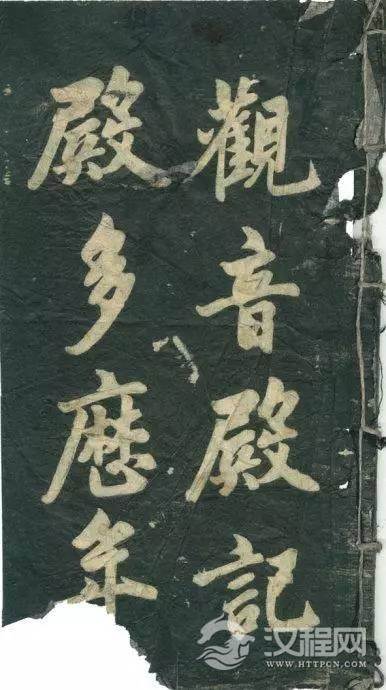 觀音殿記
殿多歷年
汉程网
WWW.HTTPCN.COM